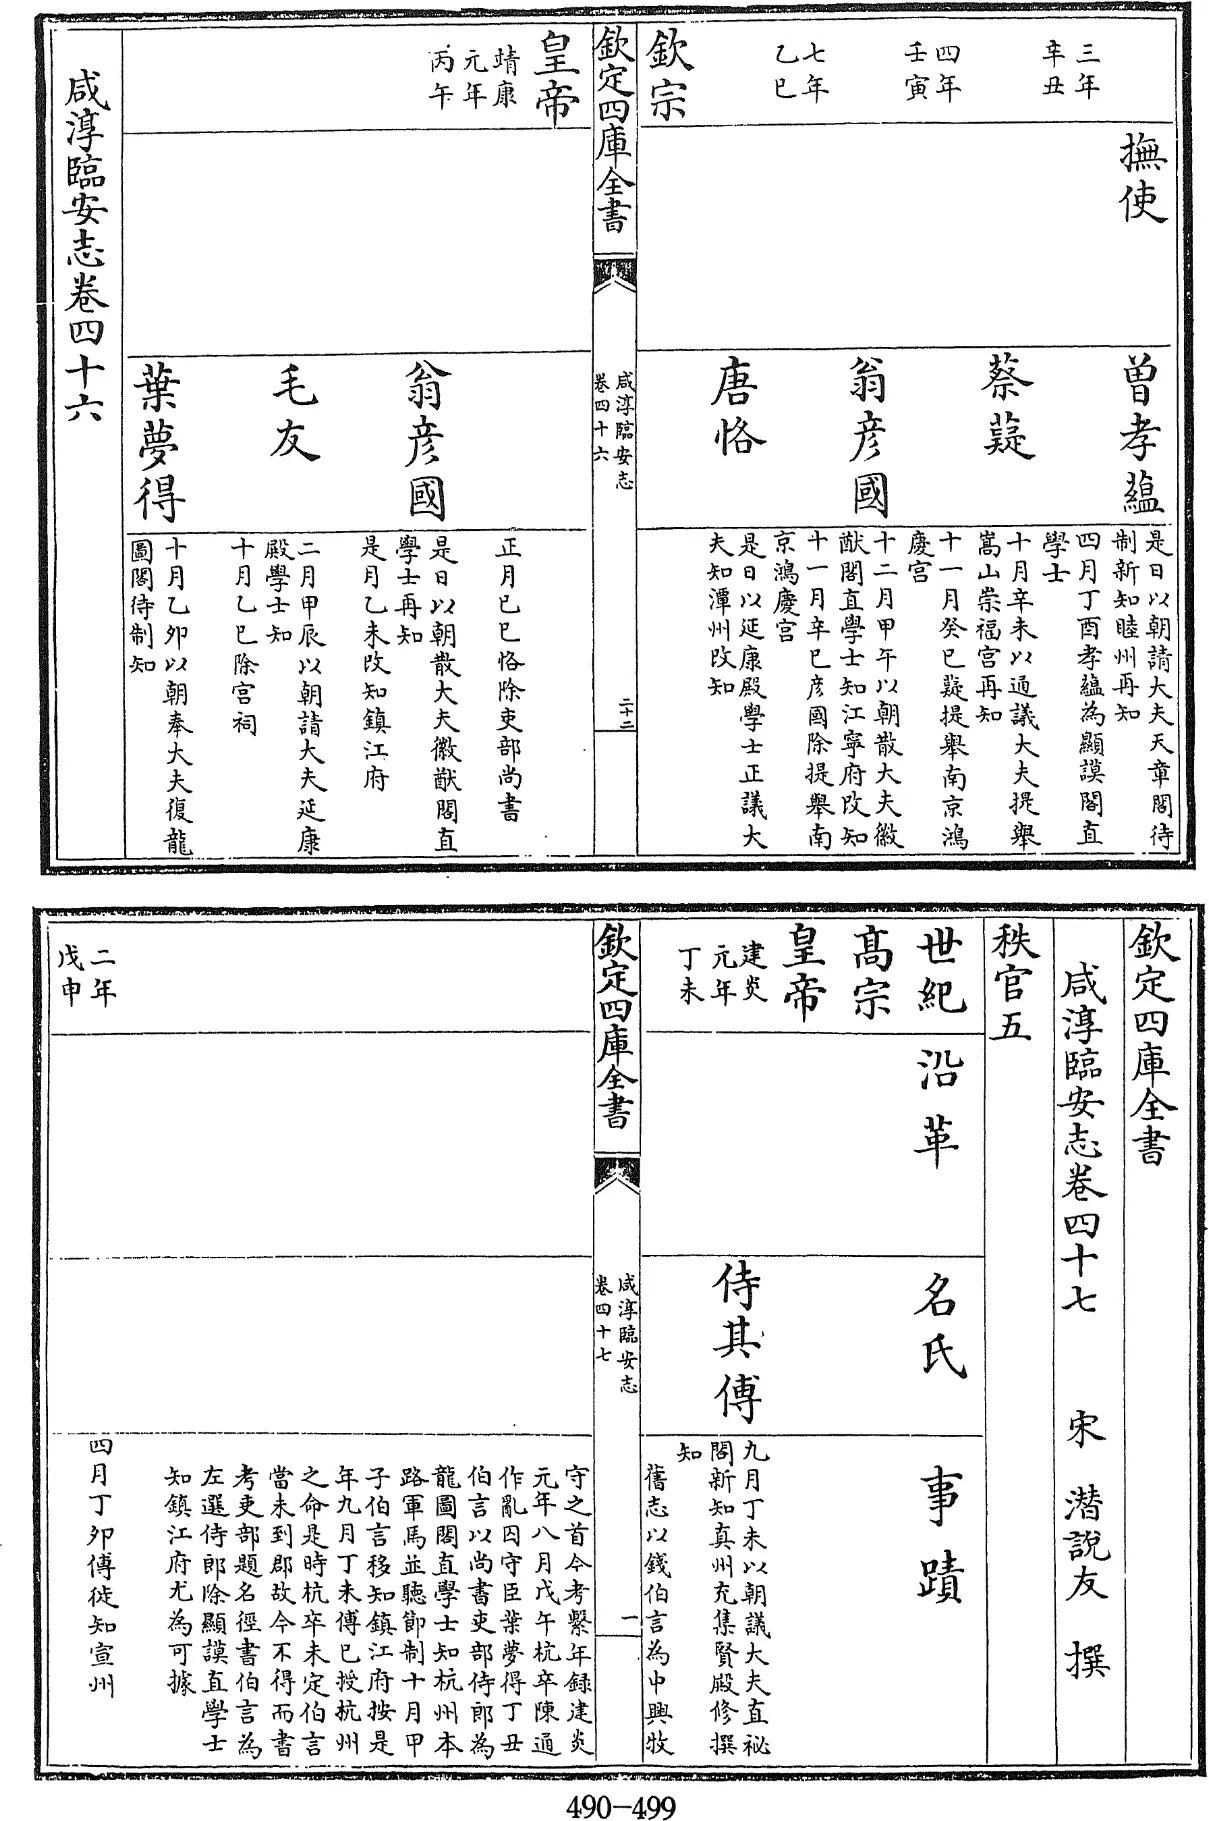 三年
辛丑
四年
壬寅
七年
乙巳
欽宗
撫使
曾孝蘊
蔡薿
翁彦國
唐恪
是日以朝請大夫天章閣待
制新知睦州再知
四月丁酉孝蘊為顯謨閣直
學士
十月辛未以通議大夫提舉
嵩山崇福宫再知
十一月癸巳薿提舉南京鴻
慶宫
十二月甲午以朝散大夫徽
猷閣直學士知江寧府改知
十一月辛巳彦國除提舉南
京鴻慶宫
是日以延康殿學士正議大
夫知潭州改知
欽定四庫全書
咸淳臨安志
卷四十六
二十二
皇帝
靖康
元年
丙午
翁彦國
毛友
葉夢得
正月己巳恪除吏部尚書
是日以朝散大夫徽猷閣直
學士再知
是月乙未改知鎮江府
二月甲辰以朝請大夫延康
殿學士知
十月乙巳除宫祠
十月乙卯以朝奉大夫復龍
圖閣待制知
咸淳臨安志卷四十六
欽定四庫全書
咸淳臨安志卷四十七 宋 潜說友 撰
秩官五
世紀 沿革 名氏 事蹟
髙宗
皇帝
建炎
元年
丁未
侍其傅
九月丁未以朝議大夫直祕
閣新知真州充集賢殿修撰
知
舊志以錢伯言為中興牧
欽定四庫全書
咸淳臨安志
卷四十七
一
守之首今考繫年録建炎
元年八月戊午杭卒陳通
作亂囚守臣葉夢得丁丑
伯言以尚書吏部侍郎為
龍圖閣直學士知杭州本
路軍馬並聽節制十月甲
子伯言移知鎮江府按是
年九月丁未傅已授杭州
之命是時杭卒未定伯言
當未到郡故今不得而書
考吏部題名徑書伯言為
左選侍郎除顯謨直學士
知鎮江府尤為可據
二年
戊申
四月丁卯傅徙知宣州
490-499